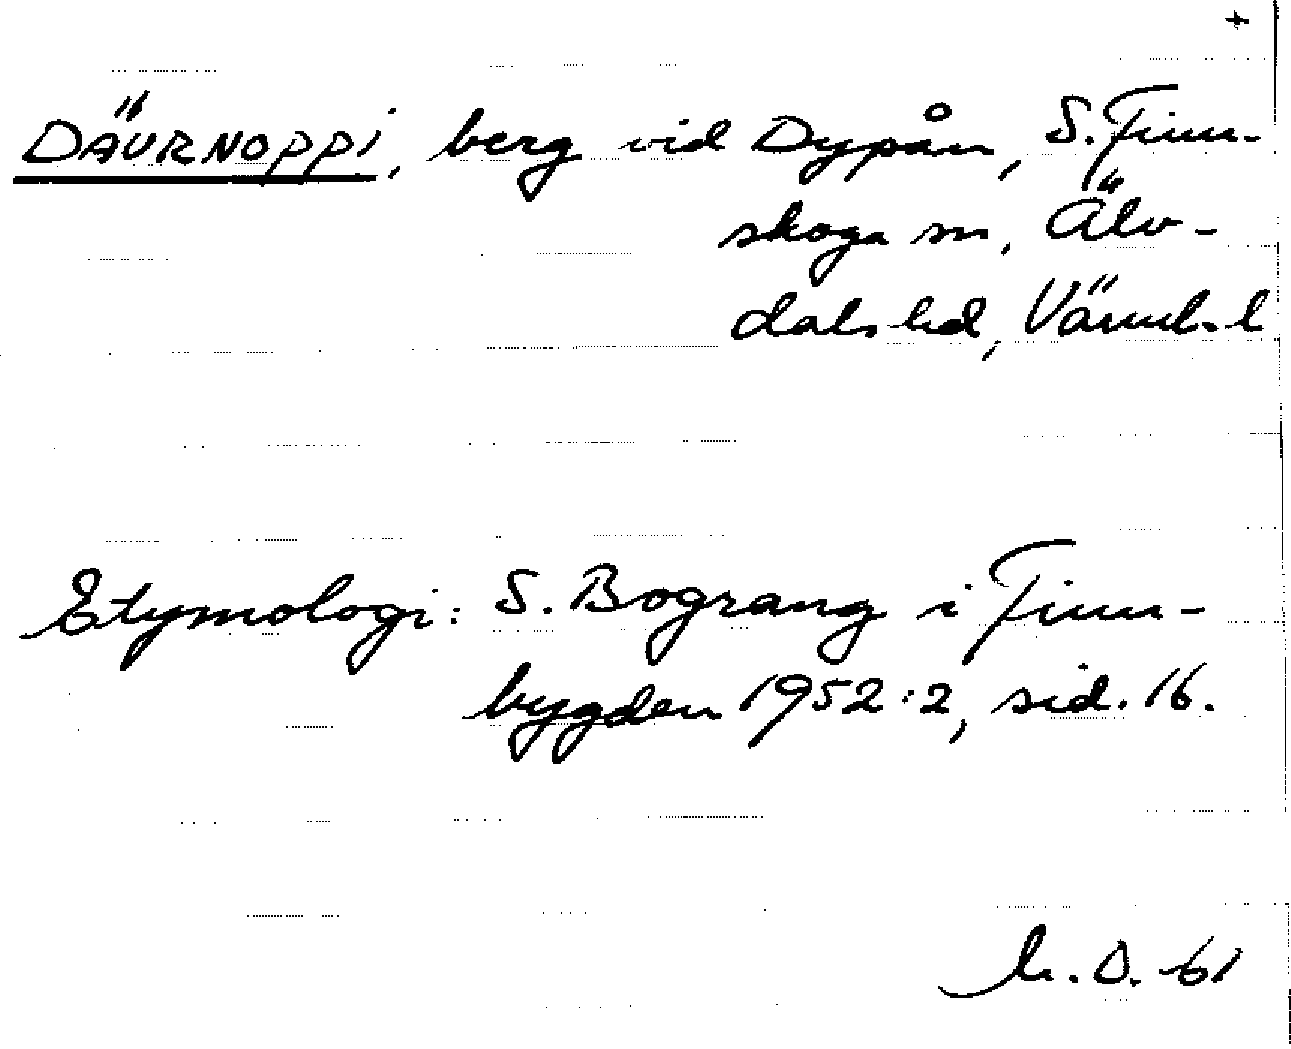 +
DÄURNOPPI, berg vid Dypån, S. Finn-
skoga sn, Älv-
dals hd, Värml. l
Etymologi: S. Bograng i Finn-
bygden 1952:2, sid. 16.
D. 61